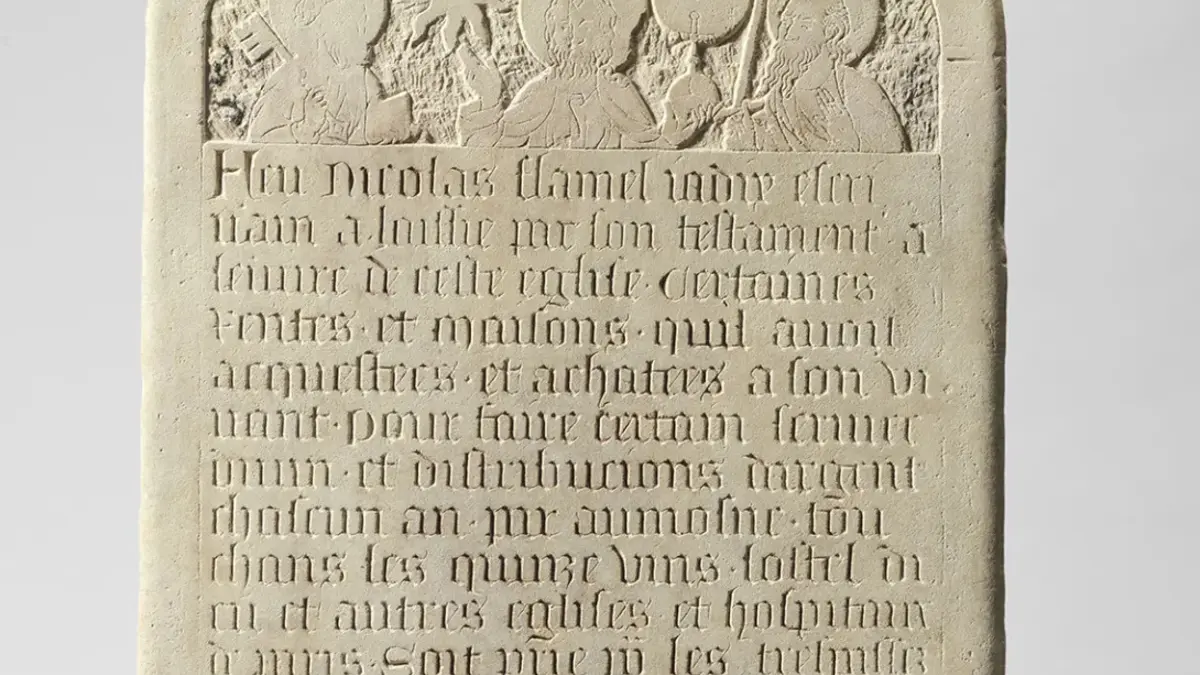 Feu Nicolas flamel jadix escri
uain a laissie par son testament a
leuure de ceste eglise certaines
Rentes · et maisons · quil auoit
acquestees · et achatees a son vi
uant · pour faire certain seruice
diuin · et distribucions dargent
chascun an · par aumosne · tou
chans les quinze vins · lostel di
eu et autres eglises et hospitaux
Soit les trespassez